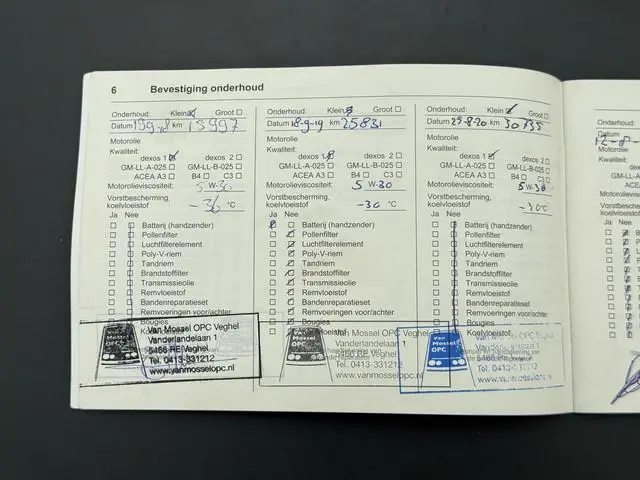 6 Bevestiging onderhoud
Onderhoud: Klein Groot
Datum 19-9-18 km 15997
Motorolie
Kwaliteit:
dexos 1 dexos 2
GM-LL-A-025 GM-LL-B-025
ACEA A3 B4 C3
Motorolieviscositeit: 5W-30
Vorstbescherming,
koelvloeistof -36 °C
Ja Nee
Batterij (handzender)
Pollenfilter
Luchtfilterelement
Poly-V-riem
Tandriem
Brandstoffilter
Transmissieolie
Remvloeistof
Bandenreparatieset
Remvoeringen voor/achter
Bougies
Van Mossel OPC Veghel
Vanderlandelaan 1
5466 RE Veghel
Tel. 0413-331212
www.vanmosselopc.nl
Onderhoud: Klein Groot
Datum 18-9-19 km 25831
Motorolie
Kwaliteit:
dexos 1 dexos 2
GM-LL-A-025 GM-LL-B-025
ACEA A3 B4 C3
Motorolieviscositeit: 5W-30
Vorstbescherming,
koelvloeistof -30 °C
Ja Nee
Batterij (handzender)
Pollenfilter
Luchtfilterelement
Poly-V-riem
Tandriem
Brandstoffilter
Transmissieolie
Remvloeistof
Bandenreparatieset
Remvoeringen voor/achter
Bougies
Van Mossel OPC Veghel
Vanderlandelaan 1
5466 RE Veghel
Tel. 0413-331212
www.vanmosselopc.nl
Onderhoud: Klein Groot
Datum 25-8-20 km 30735
Motorolie
Kwaliteit:
dexos 1 dexos 2
GM-LL-A-025 GM-LL-B-025
ACEA A3 B4 C3
Motorolieviscositeit: 5W-30
Vorstbescherming,
koelvloeistof -30°C
Ja Nee
Batterij (handzender)
Pollenfilter
Luchtfilterelement
Poly-V-riem
Tandriem
Brandstoffilter
Transmissieolie
Remvloeistof
Bandenreparatieset
Remvoeringen voor/achter
Bougies
Koelvloeistof
Van Mossel OPC
Tel. 0413-331212
www.vanmosselopc.nl
Onderhoud:
Datum
Motorolie
Kwaliteit:
GM-LL-A
ACEA
Motorolieviscositeit
Vorstbescherming
koelvloeistof
Ja Nee